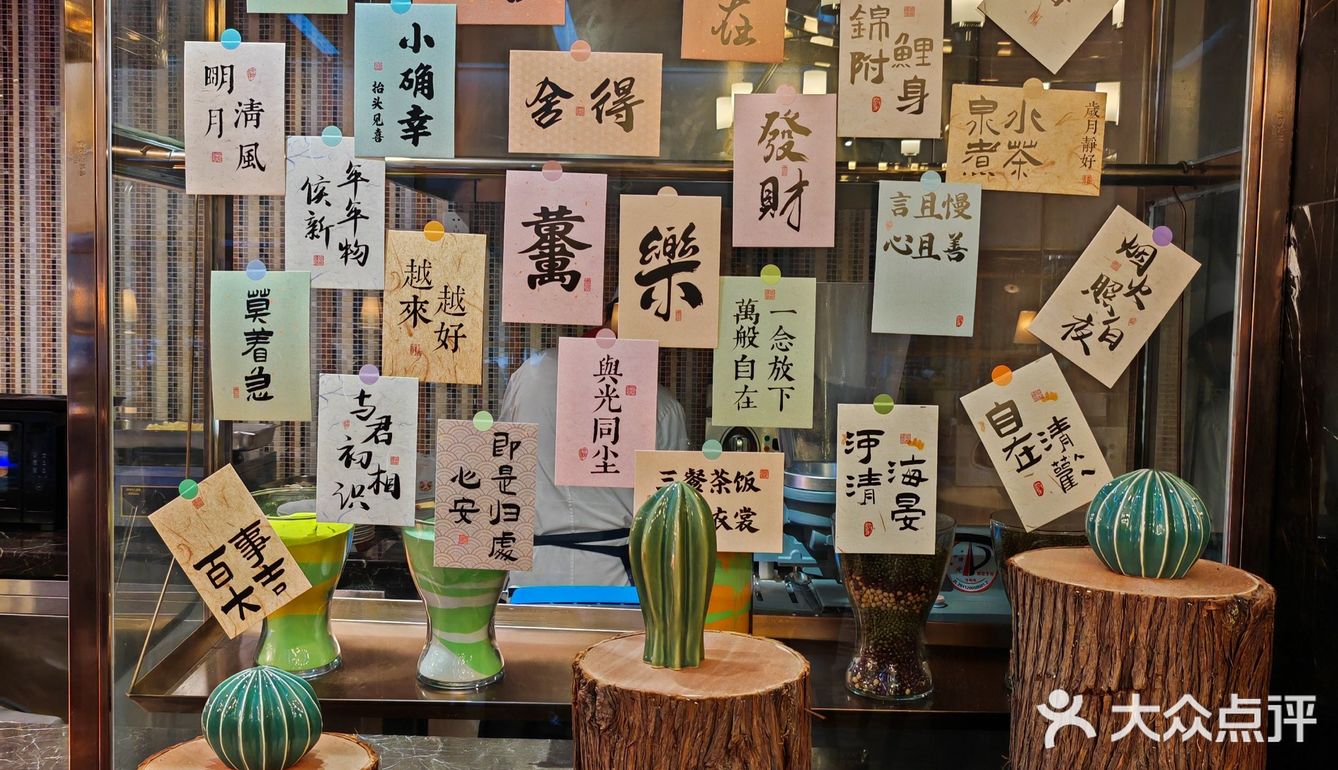 在
錦鯉
附身
小确幸
抬头见喜
清風
明月
舍得
發財
歲月靜好
泉水
煮茶
年年物
侯新
越來
越好
樂
言且慢
心且善
烟火
莫着急
一念放下
萬般自在
與光同尘
与君
初相
识
心安
即是归處
三餐茶饭
衣裳
河清
海晏
自在
清
百事
大吉
大众点评